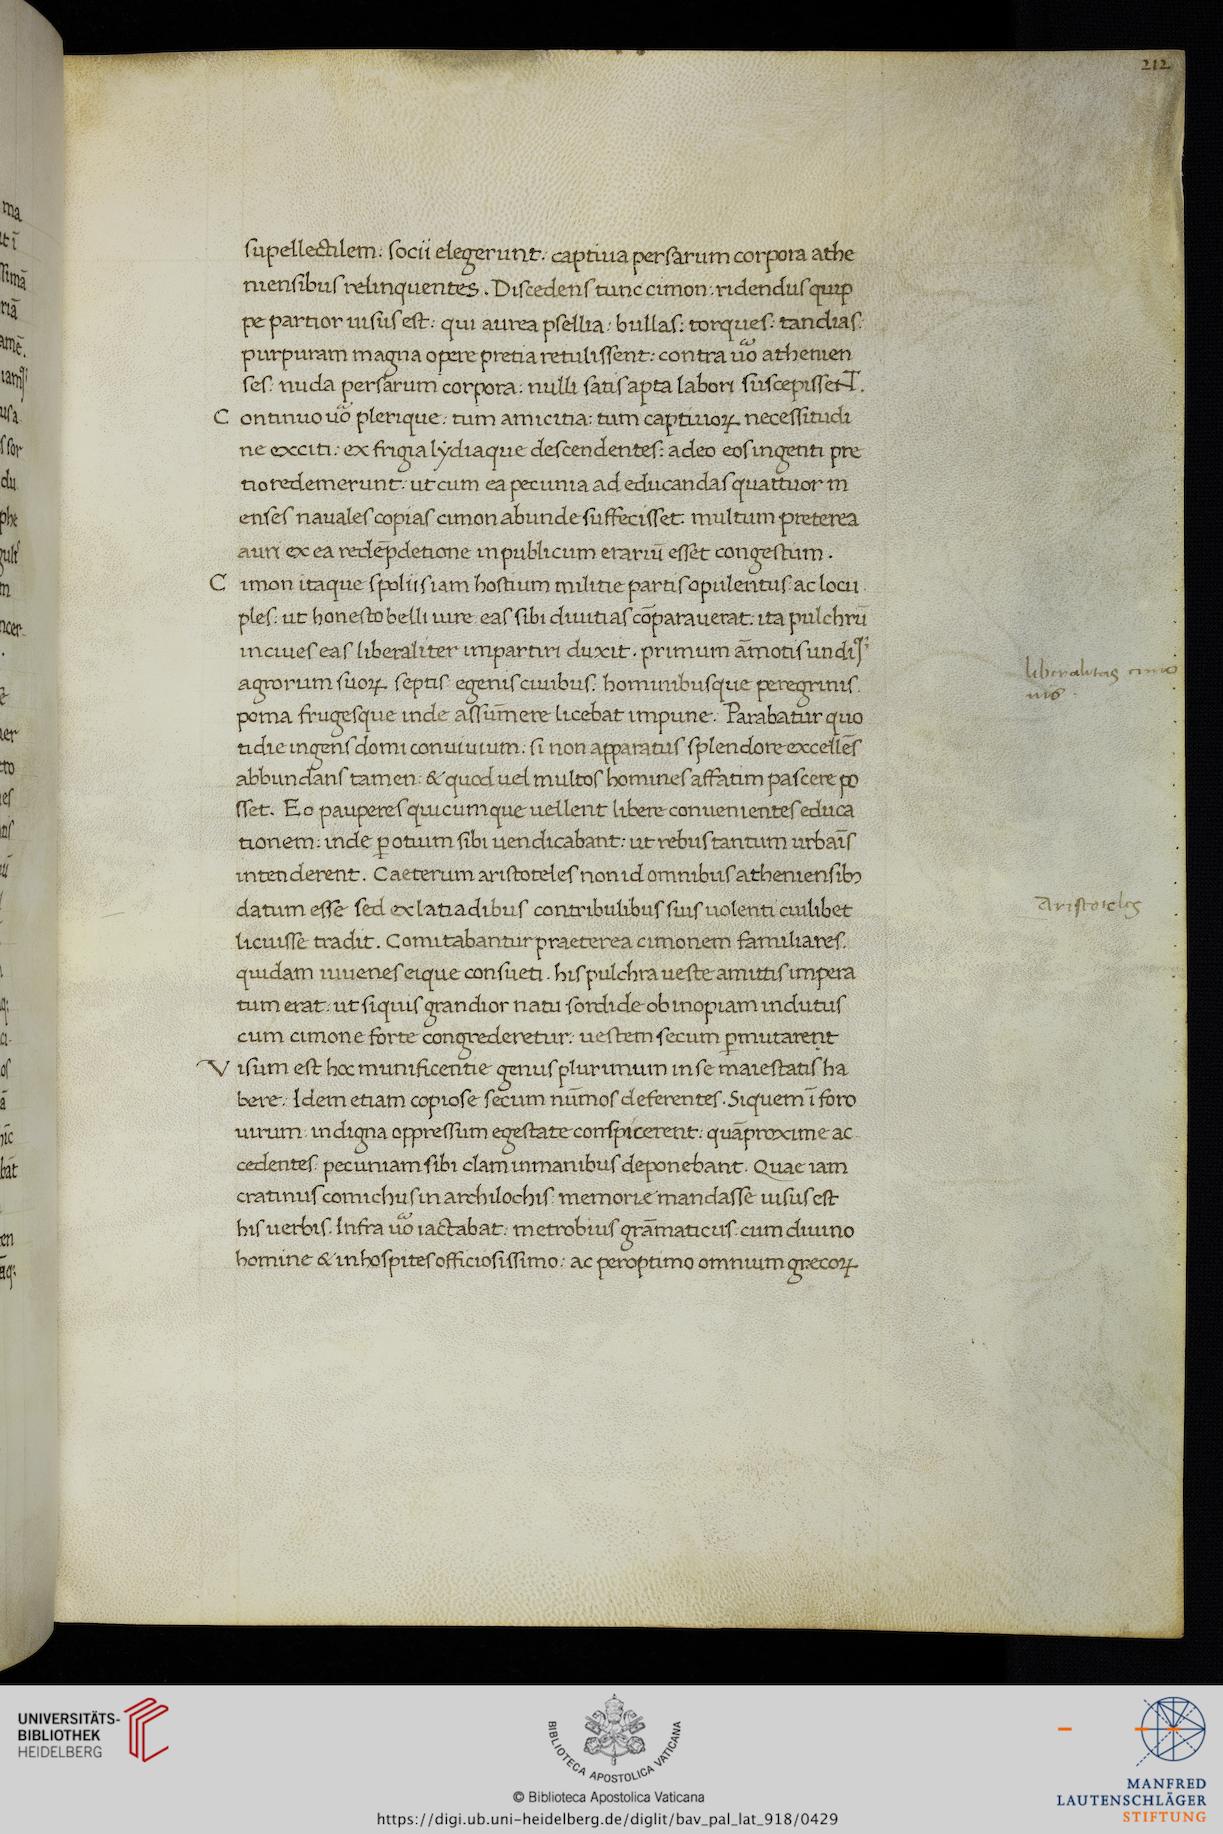 212
supellectilem: socii elegerunt: captiua persarum corpora athe
niensibus relinquentes. Discedens tunc cimon: ridendus quip
pe partior uisus est: qui aurea psellia: bullas: torques: candias:
purpuram magna opere pretia retulissent: contra uo᷒ athenien
ses: nuda persarum corpora: nulli satis apta labori suscepisset.
Continuo uo᷒ plerique: tum amicitia: tum captiuoꝝ necessitudi
ne exciti: ex frigia lydiaque descendentes: adeo eos ingenti pre
tio redemerunt: ut cum ea pecunia ad educandas quattuor m
enses nauales copias cimon abunde suffecisset: multum preterea
auri ex ea redeꝑdetione in publicum erariū esset congestum.
Cimon itaque spoliis iam hostium militie partis opulentus: ac locu
ples: ut honesto belli iure eas sibi diuitias cōparauerat: ita pulchrū
in ciues eas liberaliter impartiri duxit. primum āmotis undiqꝫ
agrorum suoꝝ septis egenis ciuibus: hominibusque peregrinis
poma frugesque inde assūmere licebat impune. Parabatur quo
tidie ingens domi conuiuium: si non apparatus splendore excellēs
abbundans tamen: & quod uel multos homines affatim pascere po
sset. Eo pauperes quicumque uellent libere conuenientes educa
tionem: inde ꝑ otium sibi uendicabant: ut rebus tantum urbāis
intenderent. Caeterum aristoteles non id omnibus atheniensibꝫ
datum esse sed ex latiadibus contribulibus suis uolenti cuilibet
licuisse tradit. Comitabantur praeterea cimonem familiares:
quidam iuuenes eique consueti. his pulchra ueste amittis impera
tum erat: ut siquis grandior natu sordide ob inopiam indutus
cum cimone forte congrederetur: uestem secum ꝑmutarent
Visum est hoc munificentie genus plurimum in se maiestatis ha
bere: Idem etiam copiose secum nūmos deferentes. Siquem ī foro
uirum: indigna oppressum egestate conspicerent: quāproxime ac
cedentes: pecuniam sibi clam inmanibus deponebant. Quae iam
cratinus comichus in archilochis memorie mandasse uisus est
his uerbis. Infra uo᷒ iactabat: metrobius grāmaticus: cum diuino
homine & inhospites officiosissimo: ac peroptimo omnium grecoꝝ
liberalitas cimo
nis.
Aristoteles
UNIVERSITÄTS-
BIBLIOTHEK
HEIDELBERG
BIBLIOTECA APOSTOLICA VATICANA
© Biblioteca Apostolica Vaticana
https://digi.ub.uni-heidelberg.de/diglit/bav_pal_lat_918/0429
MANFRED
LAUTENSCHLÄGER
STIFTUNG